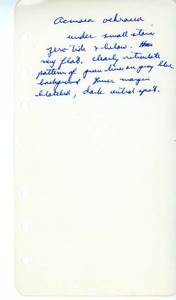 Acmaea ochracea
under small stone
zero tide & below.
very flat, clearly reticulate
pattern of green lines on grey blue
background. Inner margin
blotched, dark central spot.